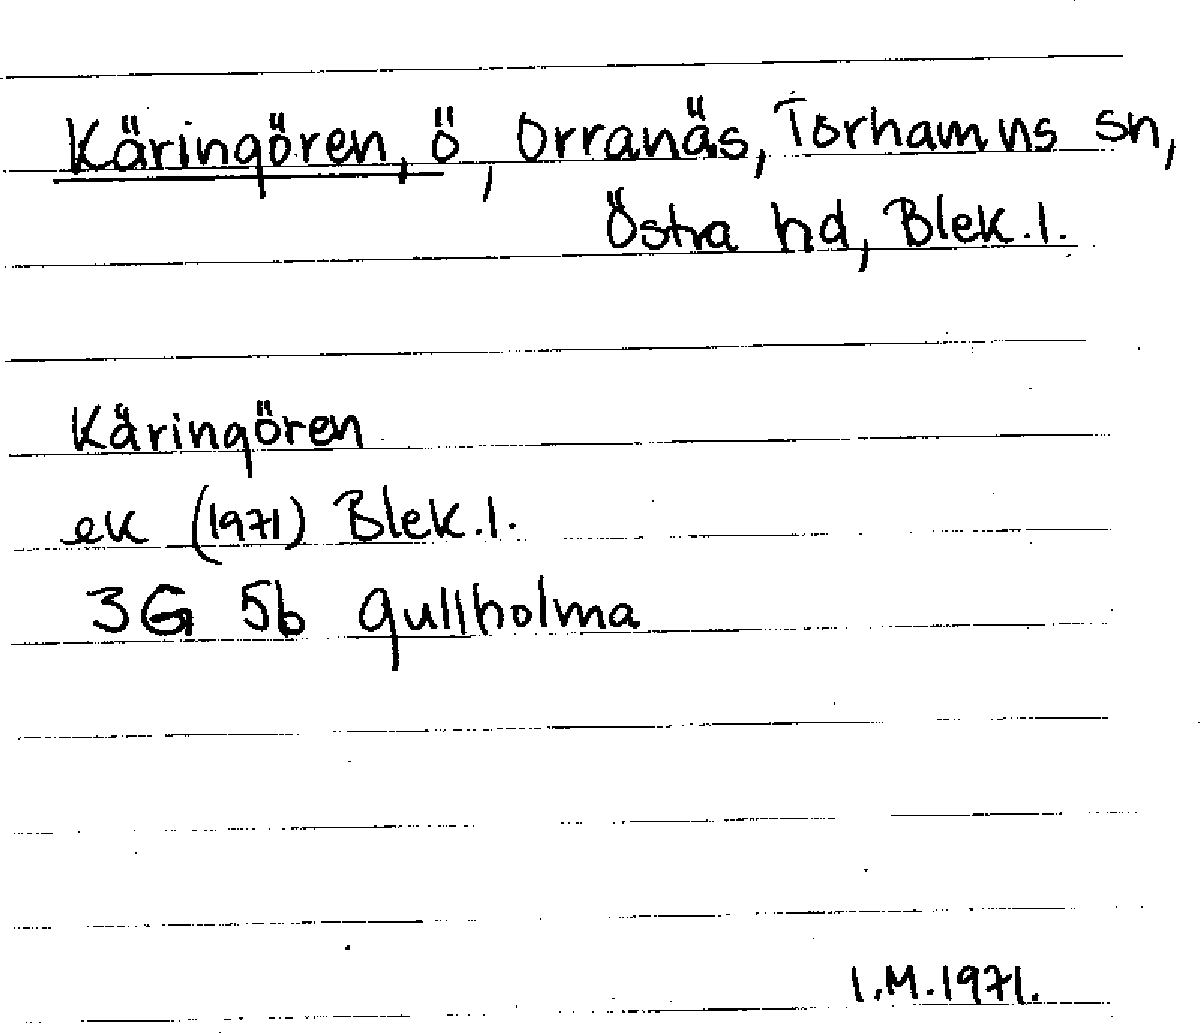 Käringören, ö, Orranäs, Torhamns sn,
Östra hd, Blek. l.
Käringören
ek (1971) Blek. l.
3G 5b Gullholma
I.M. 1971.